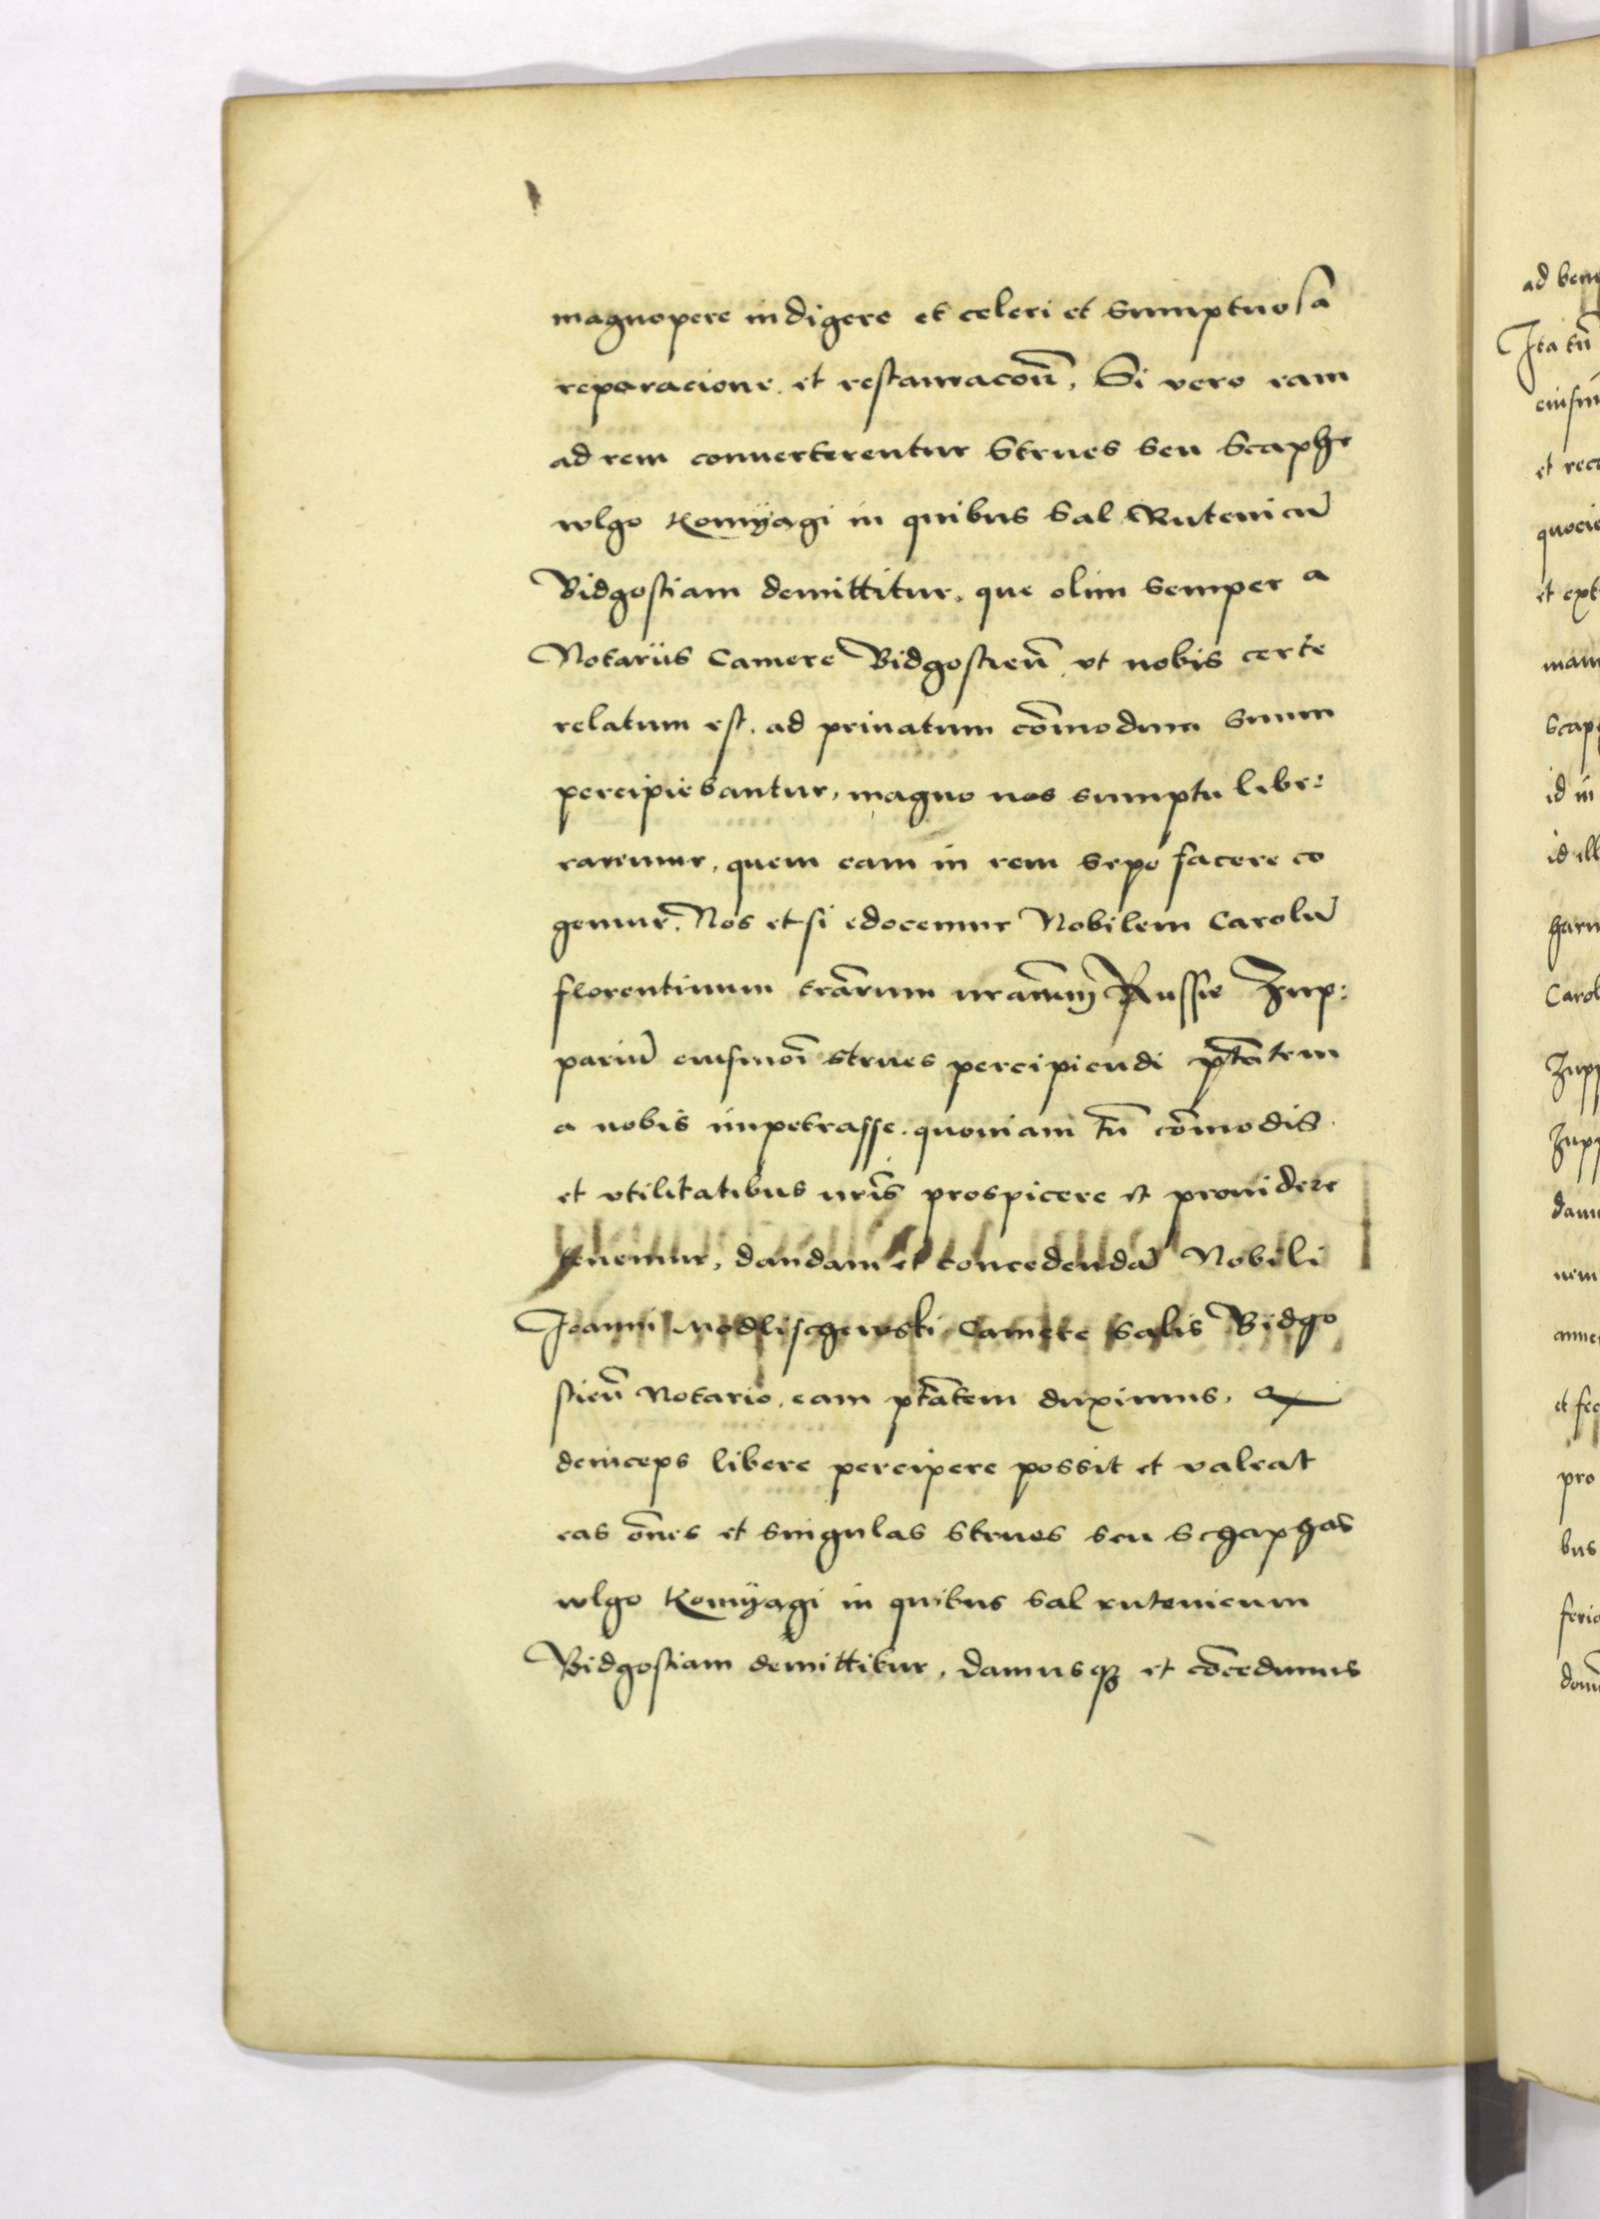 magnopere indigere et celeri et sumptuosa
reparacione et restauracoñ, Si vero eam
ad rem conuerterentur Strues seu Scaphe
wlgo Komÿagi in quibus Sal Rutenicũ
Bidgostiam demittitur, que olim semper a
Notariis Camere Bidgostieñ vt nobis certe
relatum est, ad priuatum cõmodum suum
percipiebantur, magno nos sumptu libe:
raremur, quem eam in rem sepe facere co
gemur. Nos etsi edocemur Nobilem Carolũ
florentinum trãrum nrãrum Russie Zup:
pariũ eiusmõi strues percipiendi ptãtem
a nobis impetrasse. quoniam tñ cõmodis
et vtilitatibus nrĩs prospicere et prouidere
tenemur, dandam et concedendã Nobili
Joanni Modlischewski Camere Salis Bidgo
stieñ Notario, eam ptãtem duximus,
deinceps libere percipere possit et valeat
eas oẽs et singulas strues seu schaphas
wlgo Komÿagi in quibus sal rutenicum
Bidgostiam demittitur, damusqȝ et cõcedimus
ad
Ita tñ
et
quocie
et
scap
id in
id ill
Carol
Zupp
Zupp
et
pro
bus